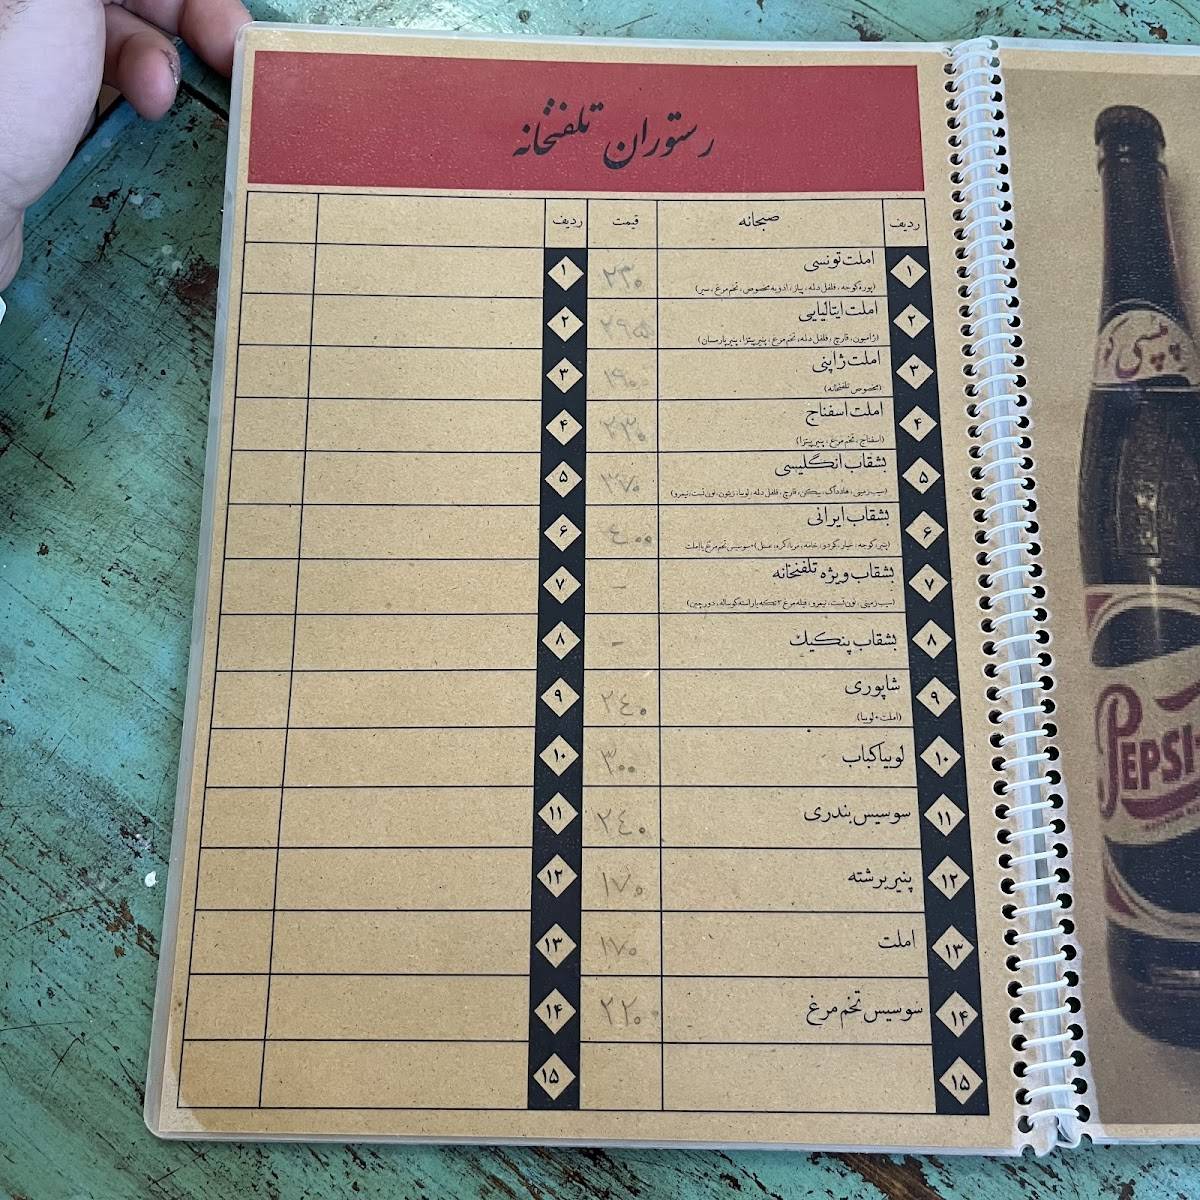 رستوران تلفنخانه
ردیف صبحانه قیمت ردیف
۱ املت تونسی ۲۳۰ ۱
(پوره گوجه، فلفل دلمه، پیاز، ادویه مخصوص، تخم مرغ، سیر)
۲ املت ایتالیایی ۲۹۵ ۲
(ژامبون، قارچ، فلفل دلمه، تخم مرغ، پنیر پیتزا، پنیر پارمسان)
۳ املت ژاپنی ۱۹۰ ۳
(مخصوص تلفنخانه)
۴ املت اسفناج ۲۳۰ ۴
(اسفناج، تخم مرغ، پنیر پیتزا)
۵ بشقاب انگلیسی ۳۷۰ ۵
(سیب زمینی، هات داگ، بیکن، قارچ، فلفل دلمه، لوبیا، زیتون، نون تست، نیمرو)
۶ بشقاب ایرانی ۴۰۰ ۶
(پنیر، گوجه، خیار، گردو، خامه، مربا، کره، عسل) + سوسیس تخم مرغ یا املت
۷ بشقاب ویژه تلفنخانه - ۷
(سیب زمینی، نون تست، نیمرو، فیله مرغ ۲ تکه یا راسته گوساله، دورچین)
۸ بشقاب پنکیک - ۸
۹ شاپوری ۲۴۰ ۹
(املت + لوبیا)
۱۰ لوبیا کباب ۳۰۰ ۱۰
۱۱ سوسیس بندری ۲۴۰ ۱۱
۱۲ پنیر برشته ۱۷۰ ۱۲
۱۳ املت ۱۷۰ ۱۳
۱۴ سوسیس تخم مرغ ۲۲۰ ۱۴
۱۵ ۱۵
پپسی کو
PEPSI